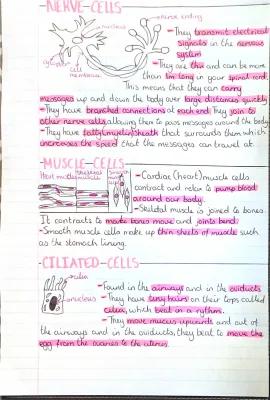 -NERVE-CELLS
nerve ending
nucleus
cytoplasm
cell
membrane
-They transmit electrical
signals in the nervous
system
-They are thin and can be more
than 1m long in your spinal cord.
This means that they can carry
messages up and down the body over large distances quickly
-They have branched connections at each end. They join to
other nerve cells allowing them to pass messages around the body
-They have fatty(myelin)sheath that surrounds them which
increases the speed that the messages can travel at.
-MUSCLE-CELLS
Heart muscle
Skeletal
muscle
Smooth
muscle
-Cardiac (heart) muscle cells
contract and relax to pump blood
around our body.
-Skeletal muscle is joined to bones.
It contracts to make bones move and joints bend.
-Smooth muscle cells make up thin sheets of muscle such
as the stomach lining.
-CILIATED-CELLS
cilia
nucleus
-Found in the airways and in the oviducts
-They have tiny hairs on their tops called
cilia, which beat in a rythm.
-They move mucus upwards and out of
the airways and in the oviducts, they beat to move the
egg from the ovaries to the uterus.